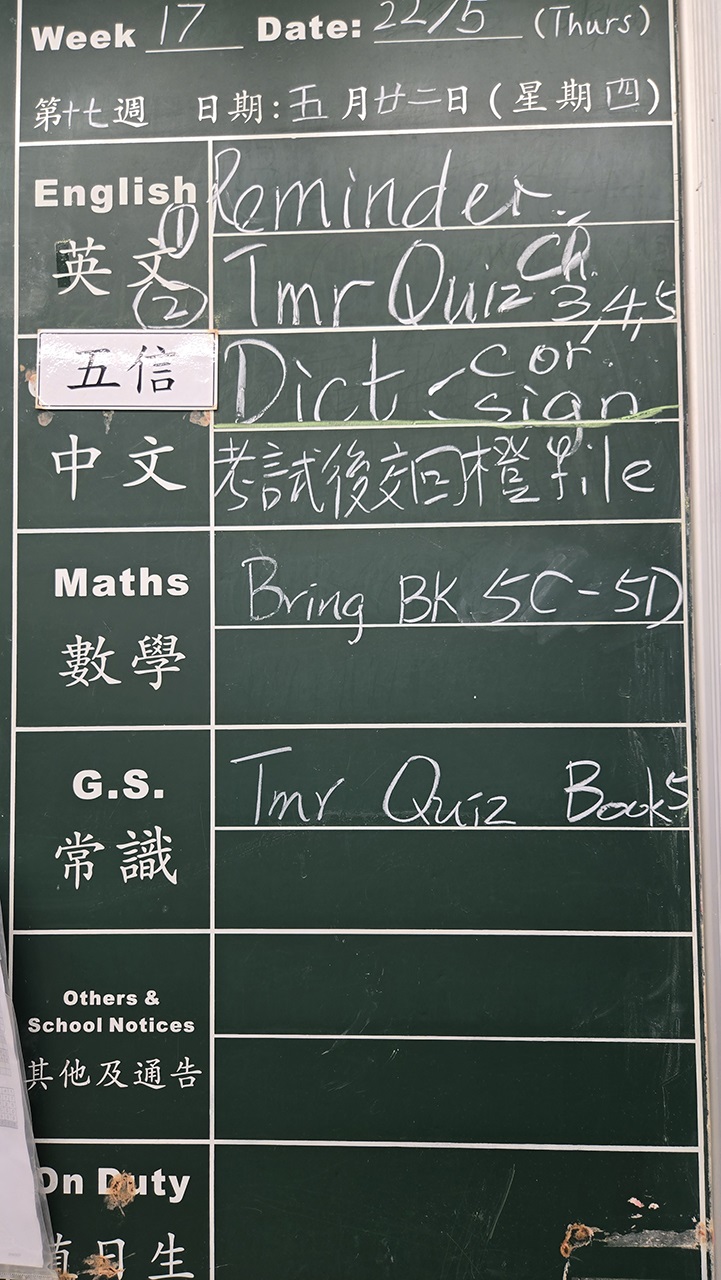 Week 17 Date: 22/5 (Thurs)
第十七週 日期:五月廿二日(星期四)
English Reminder.
英文 (1)
(2) Tmr Quiz Ch. 3,4,5
五信 Dict < cor.
sign
中文 考試後交回橙file
Maths Bring BK 5C-5D
數學
G.S. Tmr Quiz Book5
常識
Others &
School Notices
其他及通告
On Duty
值日生